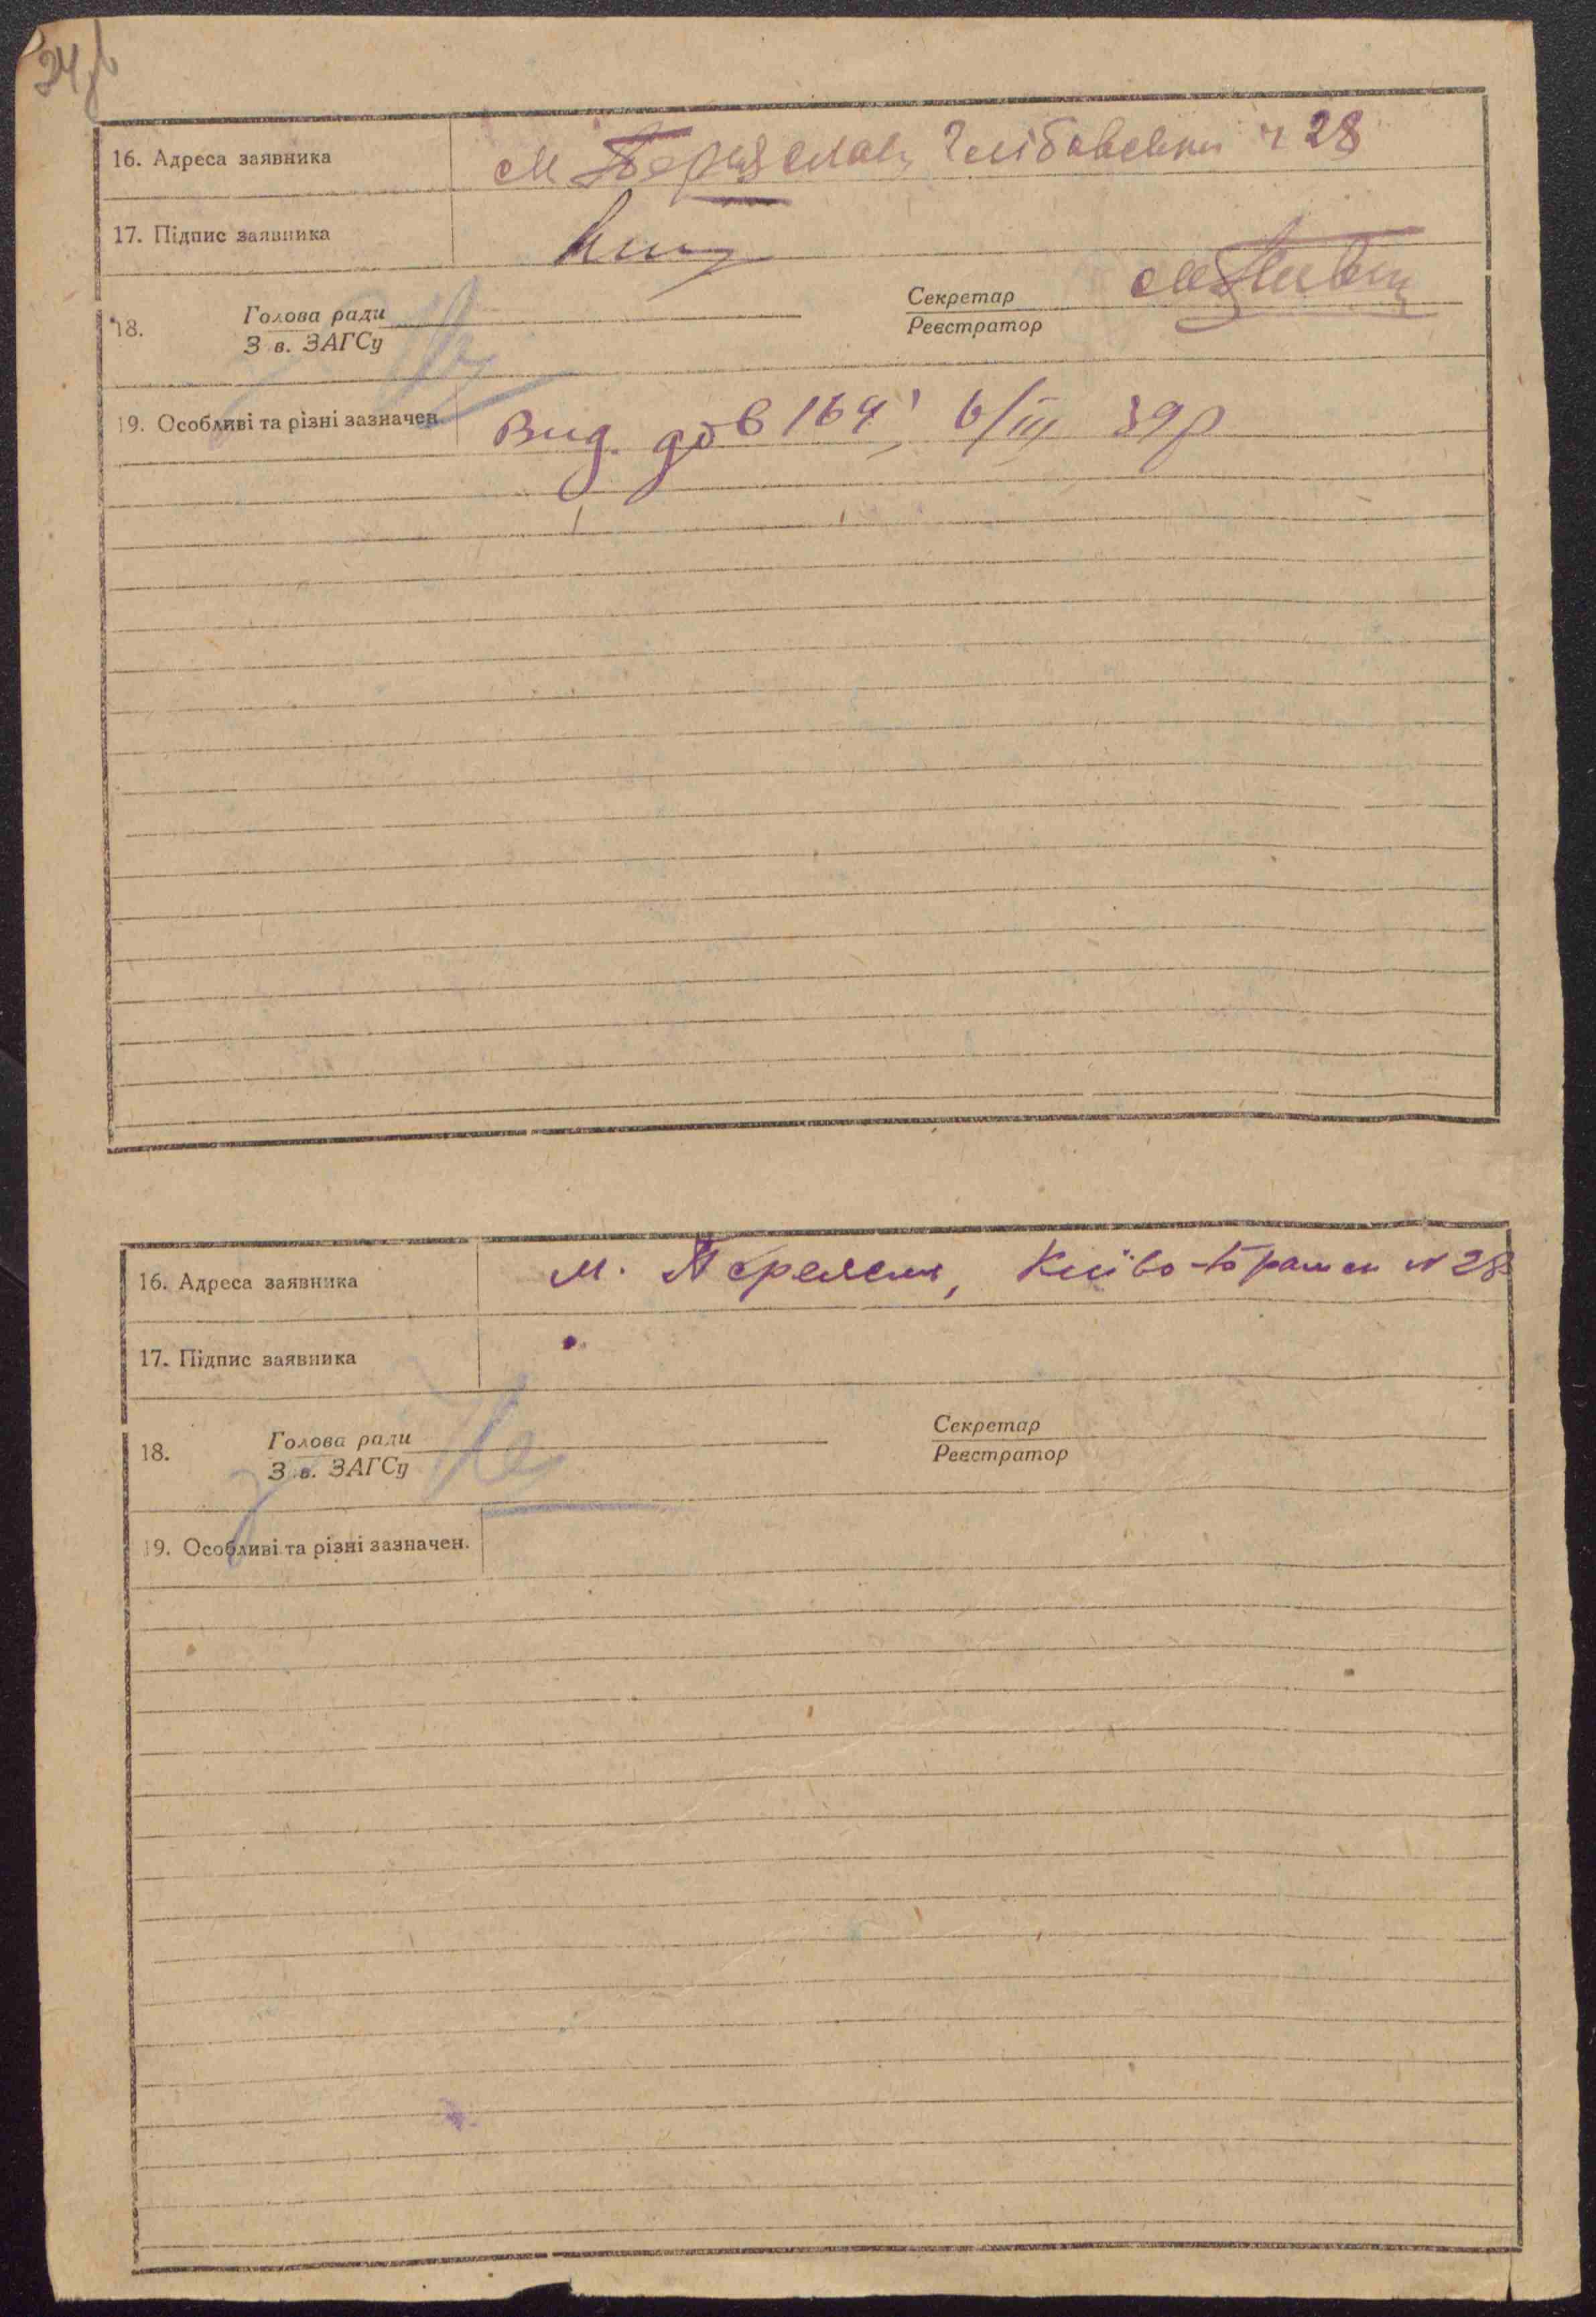 16. Адреса заявника м. Переяслав, ч 28
17. Підпис заявника
18. Голова ради Секретар
З в. ЗАГСу Реєстратор
19. Особливі та різні зазначен. Вид. дов 164, 6/III 39р
16. Адреса заявника м. Переяслав, Київо-Брамск N 28
17. Підпис заявника
18. Голова ради Секретар
З в. ЗАГСу Реєстратор
19. Особливі та різні зазначен.